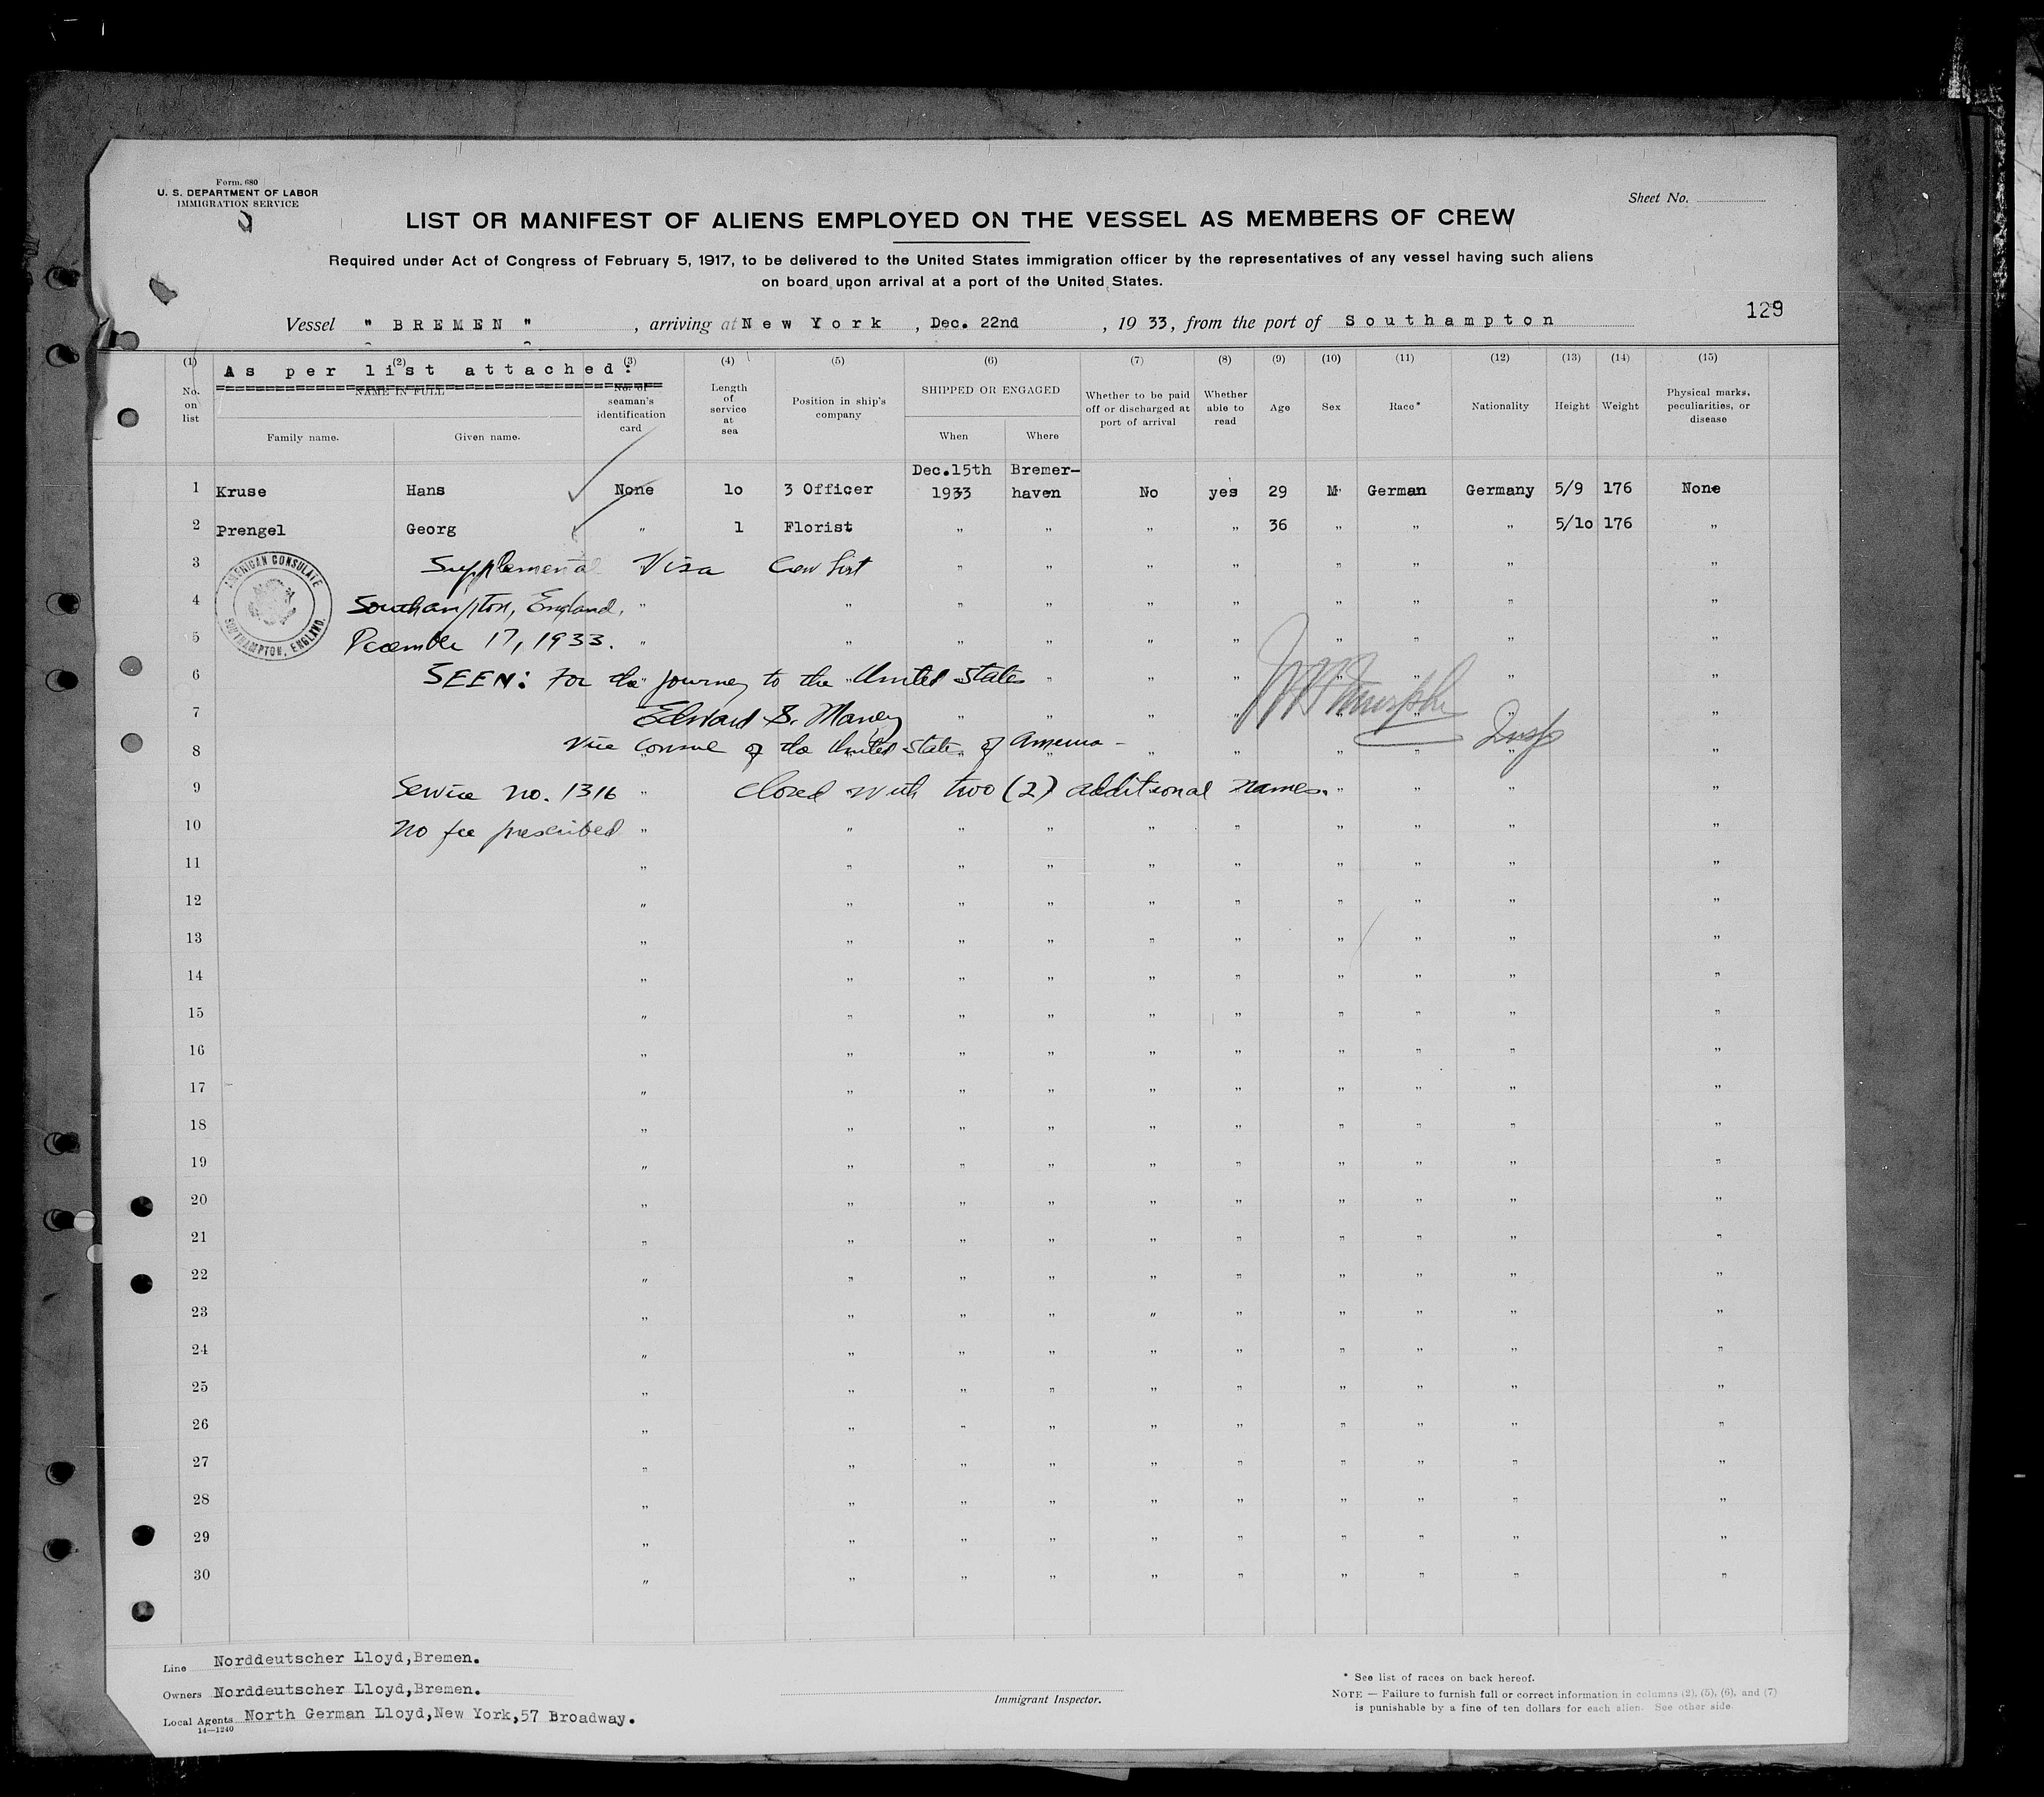 Form. 680
U. S. DEPARTMENT OF LABOR
IMMIGRATION SERVICE
Sheet No.
LIST OR MANIFEST OF ALIENS EMPLOYED ON THE VESSEL AS MEMBERS OF CREW
Required under Act of Congress of February 5, 1917, to be delivered to the United States immigration officer by the representatives of any vessel having such aliens
on board upon arrival at a port of the United States.
129
Vessel " BREMEN " , arriving at New York , Dec. 22nd , 19 33, from the port of Southampton
(1) (2) (3) (4) (5) (6) (7) (8) (9) (10) (11) (12) (13) (14) (15)
As per list attached:
No. on list
NAME IN FULL
Family name. Given name.
No. of seaman's identification card
Length of service at sea
Position in ship's company
SHIPPED OR ENGAGED
When Where
Whether to be paid off or discharged at port of arrival
Whether able to read
Age
Sex
Race*
Nationality
Height
Weight
Physical marks, peculiarities, or disease
Dec.15th Bremer-
1 Kruse Hans None 1o 3 Officer 1933 haven No yes 29 M German Germany 5/9 176 None
2 Prengel Georg " 1 Florist " " " " 36 " " " 5/1o 176 "
3 Supplemental Visa Crew List
AMERICAN CONSULATE
SOUTHAMPTON, ENGLAND.
4 Southampton, England,
5 December 17, 1933.
6 SEEN: For the journey to the United States
7 Edward S. Maney
8 Vice Consul of the United States of America -
Insp
9 Service no. 1316 Closed with two (2) additional names.
10 No fee prescribed
11
12
13
14
15
16
17
18
19
20
21
22
23
24
25
26
27
28
29
30
Line Norddeutscher Lloyd,Bremen.
Owners Norddeutscher Lloyd,Bremen.
Local Agents North German Lloyd,New York,57 Broadway.
14—1240
Immigrant Inspector.
* See list of races on back hereof.
NOTE — Failure to furnish full or correct information in columns (2), (5), (6), and (7)
is punishable by a fine of ten dollars for each alien. See other side.